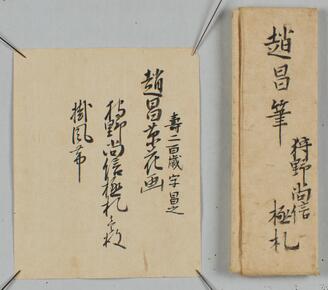 趙昌筆
狩野尚信
極札
壽二百歳 字昌之
趙昌草花画
狩野尚信極札壱枚
掛風帯